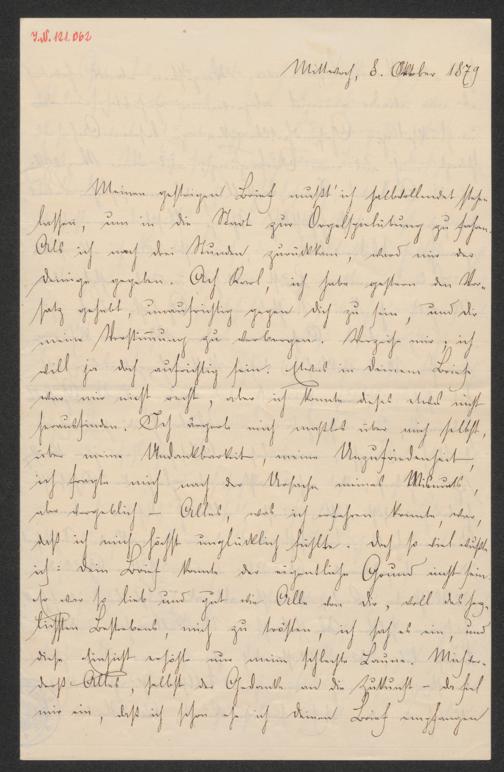 I.N. 121.062
Mittwoch, 8. Oktober 1879
Meinen gestrigen Brief mußt' ich halbvollendet stehen
lassen, um in die Stadt zur Orgelspielübung zu fahren.
Als ich nach drei Stunden zurückkam, ward mir der
Deinige gegeben. Ach Karl, ich habe gestern den Vor-
satz gehabt, unaufrichtig gegen Dich zu sein, und Dir
meine Verstimmung zu verbergen. Verzeihe mir, ich
will ja doch aufrichtig sein. Etwas in Deinem Briefe
war mir nicht recht, aber ich konnte dieses etwas nicht
herausfinden. Ich ärgerte mich maßlos über mich selbst,
über meine Undankbarkeit, meine Unzufriedenheit,
ich fragte mich nach der Ursache meines Mismuts,
aber vergeblich – Alles, was ich erfahren konnte, war,
daß ich mich höchst unglücklich fühlte. Doch so viel wußte
ich: Dein Brief konnte der eigentliche Grund nicht sein
er war so lieb und gut wie Alle von Dir, voll des
Bestrebens, mich zu trösten, ich sah es ein, und
diese Einsicht erhöhte nur meine schlechte Laune. Mich
Alles, selbst der Gedanke an die Zukunft – da fiel
mir ein, daß ich schon ehe ich Deinen Brief empfangen